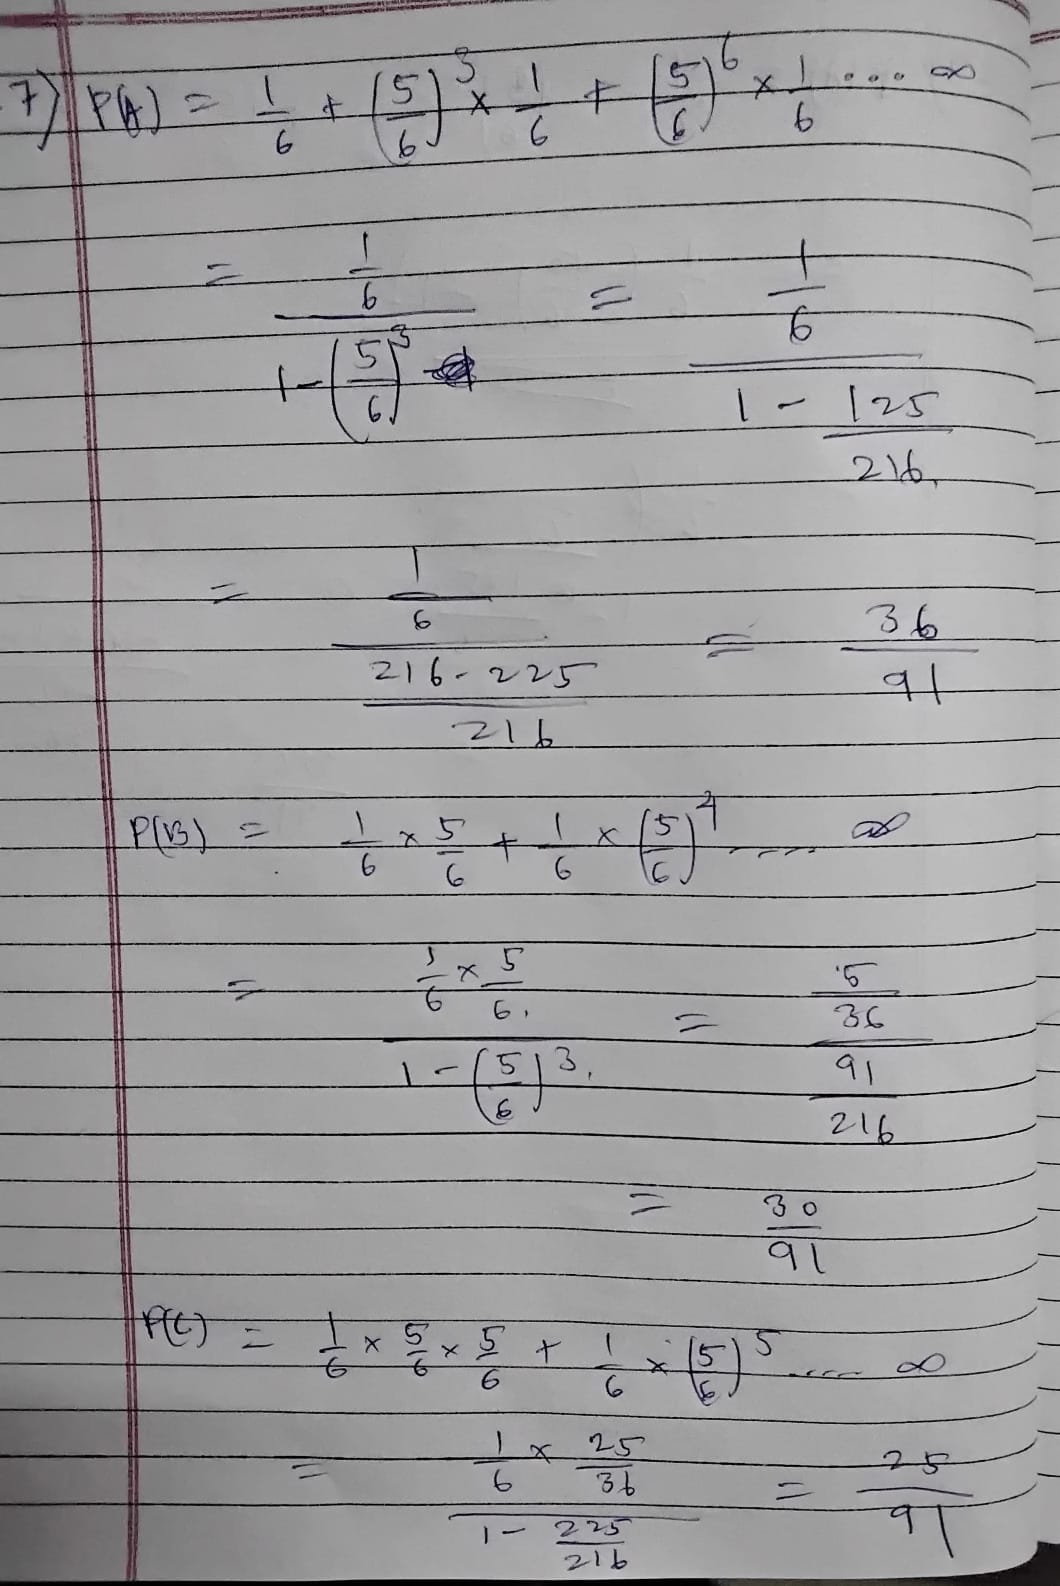 7) P(A) = 1/6 + (5/6)^3 × 1/6 + (5/6)^6 × 1/6 .... ∞
= (1/6)/(1-(5/6)^3) = (1/6)/(1 - 125/216)
= (1/6)/((216-225)/216) = 36/91
P(B) = 1/6 × 5/6 + 1/6 × (5/6)^4 ..... ∞
= (1/6 × 5/6)/(1-(5/6)^3) = (5/36)/(91/216)
= 30/91
P(C) = 1/6 × 5/6 × 5/6 + 1/6 × (5/6)^5 ..... ∞
= (1/6 × 25/36)/(1 - 225/216) = 25/91